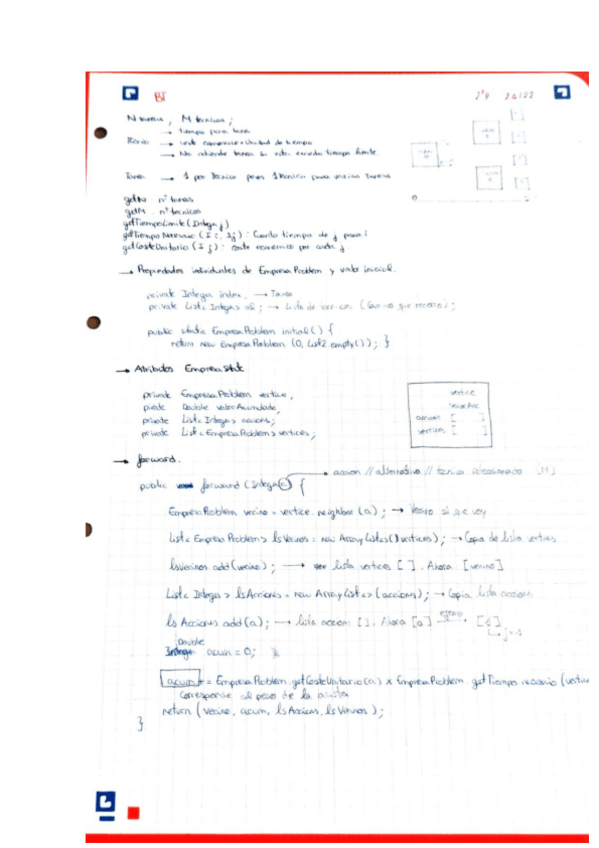 BT
N tareas, M técnicos;
→ tiempo para tarea
→ coste económico x Unidad de tiempo
→ No atiende tarea si esta excede tiempo límite
Tarea → 1 por técnico pero 1 técnico para varias Tareas
getN nº tareas
getM nº técnicos
getTiempoLimite (Integer j)
getTiempoNecesario (I i, I j) : Cuanto tiempo de j para i
getCosteUnitario (I j) : coste económico por cada j
→ Propiedades individuales de Empresa Problem y valor inicial.
private Integer index, → Tarea
private List< Integer> al ; →
public static EmpresaProblem initial () {
return new EmpresaProblem (0, List2.empty()) ; }
→ Atributos Empresa State
private EmpresaProblem vertice,
private Double valorAcumulado,
private List< Integer> acciones;
private List< EmpresaProblem> vertices;
vertice
acciones [ ]
vertices [ ]
→ forward.
→ accion // alternativa // técnico seleccionado (M)
public forward (Integer a) {
EmpresaProblem vecino = vertice.neighbor (a) ; → Vecino al que voy
List< Empresa Problem> lsVecinos = new ArrayList<>(vertices) ; → Copia de lista vertices
lsVecinos add (vecino) ; → lista vertices [ ] . Ahora [vecino]
List< Integer > lsAcciones = new ArrayList<> (acciones) ; → Copia lista acciones
ls Acciones add (a) ; → lista accion [ ]. Ahora [a] → [1]
j=1
Double
Integer acum = 0;
acum + = EmpresaProblem.getCosteUnitario (a) * EmpresaProblem.getTiempo (vertice
Corresponde al peso de la arista
return (vecino, acum, lsAcciones, lsVecinos ) ;
}